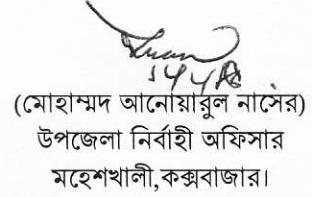 (মোহাম্মদ আনোয়ারুল নাসের)
উপজেলা নির্বাহী অফিসার
মহেশখালী,কক্সবাজার।